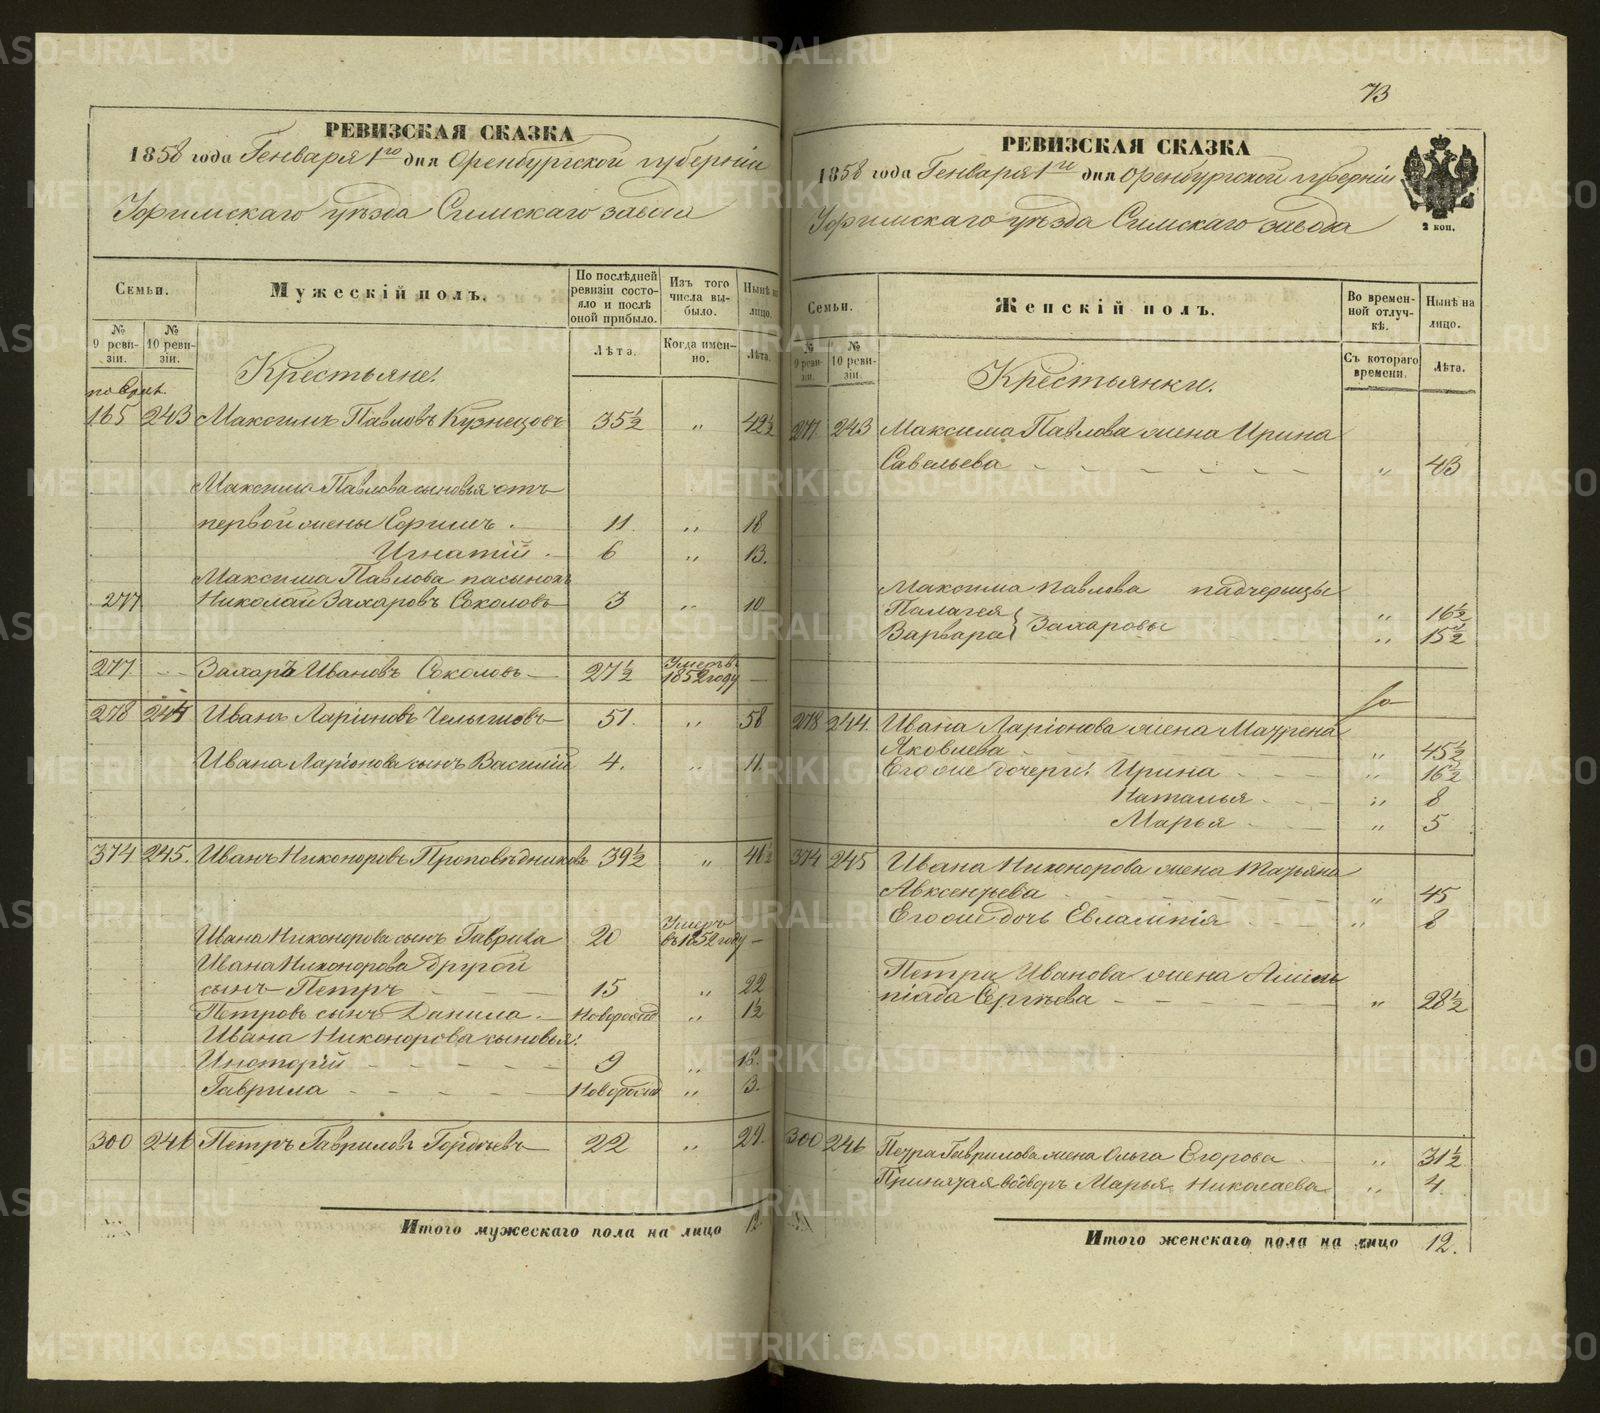 73
РЕВИЗСКАЯ СКАЗКА
1858 года Генваря 1го дня Оренбургской губерніи
Уфимскаго уѣзда Симскаго завода
Семьи.
№ 9 ревизіи.
№ 10 ревизіи.
Мужескій полъ.
По послѣдней ревизіи состояло и послѣ оной прибыло.
Лѣта.
Изъ того числа выбыло.
Когда именно.
Нынѣ на лицо.
Лѣта.
Крестьяне!
165 243 Максимъ Павловъ Кузнецовъ 35½ " 42½
Максима Павлова сыновья отъ
первой жены Ефимъ 11 " 18
Игнатій 6 " 13.
Максима Павлова пасынокъ
277 Николай Захаровъ Соколовъ 3 " 10
277 Захаръ Ивановъ Соколовъ 27½ Умеръ 1852 году
278 244 Иванъ Ларіоновъ Челышовъ 51. " 58
Ивана Ларіонова сынъ Василій 4. " 11.
374 245. Иванъ Никоноровъ Проповѣдниковъ 39½ " 46½
Ивана Никонорова сынъ Гаврила 20 Умеръ въ 1852 году
Ивана Никонорова другой
сынъ Петръ 15 " 22
Петровъ сынъ Данила Новорожд " 1½
Ивана Никонорова сыновья:
9 " 16.
Гаврила Новорожд " 3.
300 246 Петръ Гавриловъ Гордѣевъ 22 " 29.
Итого мужескаго пола на лицо 12
РЕВИЗСКАЯ СКАЗКА
1858 года Генваря 1го дня Оренбургской губерніи
Уфимскаго уѣзда Симскаго завода
2 коп.
Семьи.
№ 9 ревизіи.
№ 10 ревизіи.
Женскій полъ.
Во временной отлучкѣ.
Съ котораго времени.
Нынѣ на лицо.
Лѣта.
Крестьянки.
277 243 Максима Павлова жена Ирина
Савельева " 43
Максима Павлова падчерицы
Палагея " 16½
Варвара } Захаровы " 15½
278 244. Ивана Ларіонова жена Маѵрена
Яковлева " 45½
Его же дочери: Ирина " 16½
Наталья " 8
Марья " 5
374 245 Ивана Никонорова жена Татьяна
Авксентьева " 45
Его же дочь Евлампія " 8
Петра Иванова жена Алимпіада Сергѣева " 28½
300 246 Петра Гаврилова жена Ольга Егорова " 31½
Принятая во дворъ Марья Николаева " 4.
Итого женскаго пола на лицо 12.
METRIKI.GASO-URAL.RU